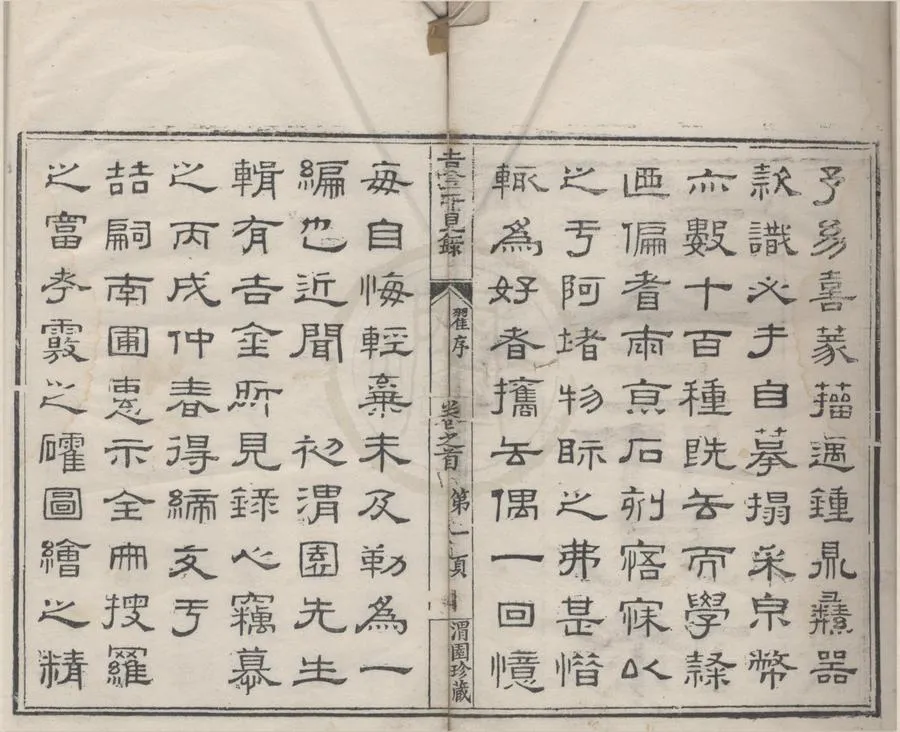 予喜篆籀遇鍾鼎彝器
款識必手自摹搨采泉幣
亦數十百種既去而學隸
迺偏耆兩京石刻寤寐以
之于阿堵物眎之弗甚惜
輒為好者攜去偶一回憶
吉金所見錄
翟序
卷之首
第一頁
渭園珍藏
每自悔輕棄未及勒為一
編也近聞 初渭園先生
輯有吉金所見錄心竊慕
之丙戌仲春得締交于
喆嗣南圃惠示全冊搜羅
之富考覈之確圖繪之精